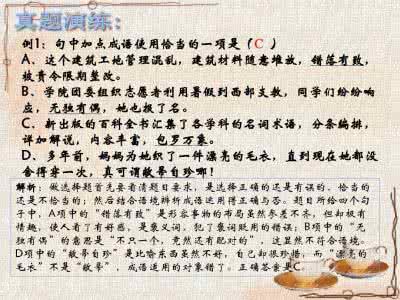 真题演练：
例1：句中加点成语使用恰当的一项是（C ）
A、这个建筑工地管理混乱，建筑材料随意堆放，错落有致，
被责令限期整改。
B、学院团委组织志愿者利用暑假到西部支教，同学们纷纷响
应，无独有偶，她也报了名。
C．新出版的百科全书汇集了各学科的名词术语，分条编排，
详加解说，内容丰富，包罗万象。
D、多年前，妈妈为她织了一件漂亮的毛衣，直到现在她都没
舍得穿一次，真可谓敝帚自珍哪！
解析：做选择题首先要看清题目要求，是选择正确的还是有误的、恰当的
还是不恰当的；然后结合语境辨析成语运用得正确与否。题目所给四个句
子中，A项中的“错落有致”是形容事物的布局虽然参差不齐，但却极有
情趣，使人看了有好感，是褒义词，犯了褒词贬用的错误；B项中的“无
独有偶”的意思是“不只一个，竟然还有配对的”，这显然不符合语境。
D项中的“敝帚自珍”是比喻东西虽然不好，自己却很珍惜，而“漂亮的
毛衣”不是“敝帚”，成语运用的对象错了。正确答案是C．